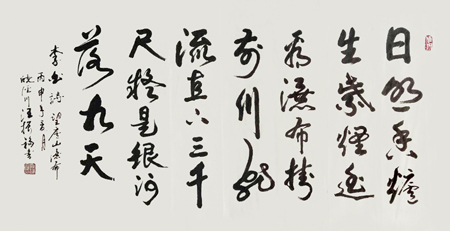 日照香爐
生紫煙遥
看瀑布掛
前川飛
流直下三千
尺疑是銀河
落九天
李白詩望庐山瀑布
丙申年月